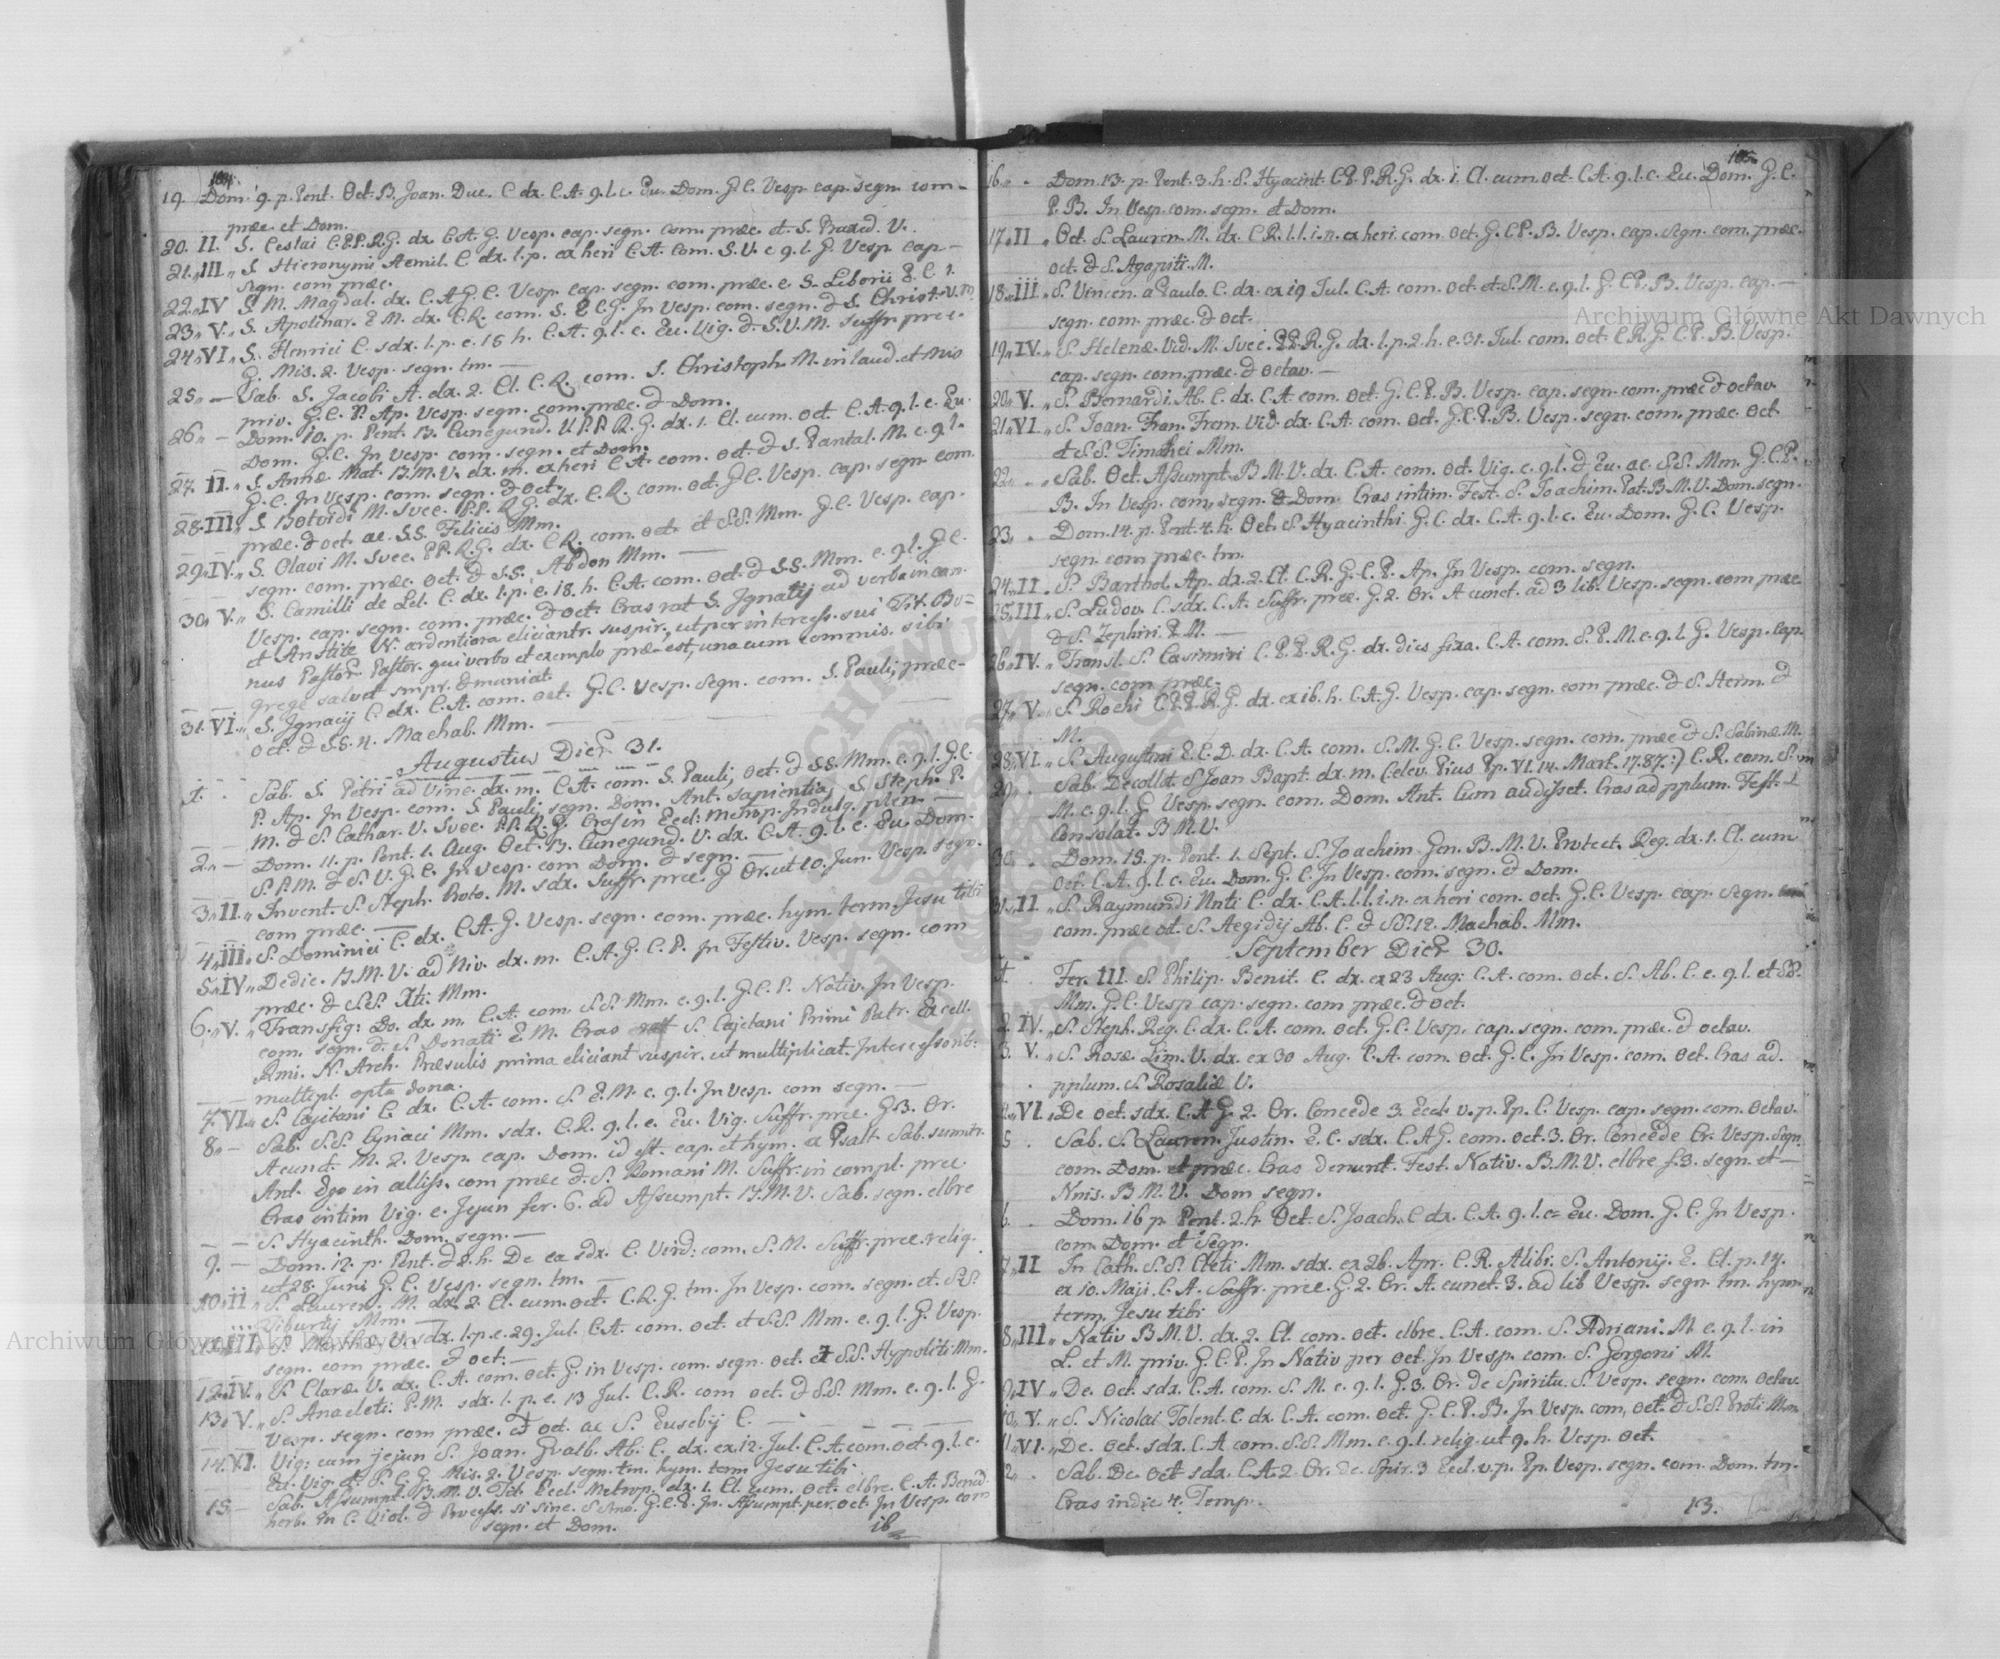 104.
19. Dom. 9. p. Pent. Oct. B. Joan. Duc. C. dx. C. A. 9. l. c. Eu. Dom. G. C. Vesp. cap. segn. com-
præc. et Dom.
20. II. S. Ceslai C. PP. R. G. dx. C. A. G. Vesp. cap. segn. com. præc. et S. Praxed. V.
21. III. S. Hieronymi Aemil. C. dx. l. p. ex heri C. A. Com. S. V. c. 9. l. G. Vesp. cap-
segn. com præc.
22. IV S. M. Magdal. dx. C. A. G. C. Vesp. cap. segn. com. præc. e S. Liborii E. C.
23. V. S. Apolinar. E M. dx. C. R. com. S. E C G. In Vesp. com. segn. & S. Christ. V. M.
24. VI. S. Henrici C. sdx. l. p. e. 15 h. C. A. 9. l. c. Eu. Vig. & S. V. M. Suffr. prec.
G. Mis. 2. Vesp. segn. tm. —
25. — Sab. S. Jacobi A. dx. 2. Cl. C. R. com. S. Christoph. M. in laud. et Mis
priv. G. C. P. Ap. Vesp. segn. com. præc. & Dom.
26. — Dom. 10. p. Pent. B. Cunegund. V. PP R. G. dx. 1. Cl. cum. Oct C. A. 9. l. c. Eu.
Dom. G. C. In Vesp. com. segn. et Dom.
27. II. S. Annæ Mat. B. M. V. dx. m. ex heri C. A. com. oct. & S. Pantal. M. c. 9. l.
G. C. In Vesp. com. segn. & oct.
28. III. S. Botvidi M. Svec. PP. R. G. dx. C. R. com. oct. G. C. Vesp. cap. segn. com
præc. & oct. ac. SS. Felicis Mm.
29. IV. S. Olavi M. Svec. PP. R. G. dx. C. R. com. oct. et SS. Mm. G. C. Vesp. cap.
segn. com. præc. oct. & SS. Abdon Mm. —
30. V. S. Camilli de Lel. C. dx. l. p. e. 18. h. C. A. com. oct. & SS. Mm. c. 9. l. G. C.
Vesp. cap. segn. com. præc. & oct. Cras rat S. Ignatij ad verba in can.
et Anstite N. ardentiora eliciantr. suspir., ut per intercess. sui Tit. Bo-
nus Pastor Pastor. qui verbo et exemplo præ-est, una cum commis. sibi
grege salvet smpr. & muniat.
31. VI. S. Ignacij C. dx. C. A. com. oct. G. C. Vesp. segn. com. S. Pauli, præc-
oct. & SS. n. Machab. Mm. —
Augustus Dier. 31.
1. Sab. S. Petri ad Vinc. dx. m. C. A. com. S. Pauli, oct. & SS. Mm. c. 9. l. G. C.
P. Ap. In Vesp. com. S. Pauli, segn. Dom. Ant. sapientia, S. Steph. P.
M. & S. Cathar. V. Svec. PP. R. G. Cras in Eccl: Metrop. Indulg. plen —
2. — Dom. 11. p. Pent. 1. Aug. Oct. B. Cunegund. V. dx. C. A. 9. l. c. Eu. Dom.
S. P. M. & S. V. G. C. In Vesp. com Dom. & segn. —
3. II. Invent. S. Steph. Proto. M. sdx. Suffr. prec. G Or. ut 10. Jun. Vesp. segn.
com præc. —
4. III. S. Dominici C. dx. C. A. G. Vesp. segn. com. præc. hym. term. Jesu tibi
5. IV. Dedic. B. M. V. ad Niv. dx. m. C. A. G. C. P. In Festiv. Vesp. segn. com
præc. & SS. Xti. Mm.
6. V. Transfig: Do. dx. m. C. A. com. SS. Mm. c. 9. l. G. C. P. Nativ. In Vesp.
com. segn. & S. Donati E M. Cras S. Cajetani Primi Patr. Excell.
Rmi. N. Arch. Præsulis prima eliciant suspir. ut multiplicat. Intercessorib.
multipl. opta dona.
7. VI. S. Cajetani C. dx. C. A. com. S. E. M. c. 9. l. In Vesp. com segn. —
8. — Sab. SS. Cyriaci Mm. sdx. C. R. 9. l. e. Eu. Vig. Suffr. prec. G. 3. Or.
A cunct. M. 2. Vesp. cap. Dom. id est. cap. et hym. a Psalt. Sab. sumtr.
Ant. Ego in altiss. com præc & S. Romani M. Suffr. in compl. prec.
Cras intim Vig. c. Jejun fer. 6. ad Assumpt. B. M. V. Sab. segn. elbre
S. Hyacinth. Dom. segn. —
9. — Dom. 12. p. Pent. & 2. h. De ea sdx. C. Virid: com. S. M. Suffr. prec. relig.
ut 28. Junii G. C. Vesp. segn. tm. —
10. II. S. Lauren. M. dx. 2. Cl. cum. oct. C. R. G. tm. In Vesp. com. segn. et. SS
Tiburtij Mm. —
11. III. S. Marthæ V. sdx. l. p. e. 29. Jul. C. A. com. oct. et SS Mm. c. 9. l. G. Vesp.
segn. com præc. & oct. —
12. IV. S. Claræ V. dx. C. A. com. oct. G. in Vesp. com. segn. oct. et SS. Hyppoliti Mm.
13. V. S. Anacleti. P. M. sdx. l. p. e. 13 Jul. C. R. com oct. & SS. Mm. c. 9. l. G.
Vesp. segn. com præc. & oct. ac S. Eusebij C. —
14. VI. Vig: cum jejun S. Joan. Gvalb. Ab. C. dx. ex 12. Jul. C. A. com. oct. 9. l. c.
Eu. Vig. & S. C. G. Mis. 2. Vesp. segn. tm. hym. term Jesu tibi
15. Sab. Assumpt. B. M. V. Tit. Eccl. Metrop. dx. 1. Cl. cum. Oct. elbre. C. A. Bened.
herb. In C. Viol. & Process. si sine. S. Smo. G. C. P. In. Assumpt. per. oct. In Vesp. com
segn. et Dom.
16
105.
16. Dom. 13. p. Pent. 3. h. S. Hyacint. C P. P. R. G. dx. 1. Cl. cum. oct. C. A. 9. l. c. Eu. Dom. G. C.
P. B. In Vesp. com. segn. et Dom.
17. II. Oct. S. Lauren. M. dx. C. R. l. l. i. n. ex heri. com. oct. G. C P. B. Vesp. cap. segn. com. præc.
oct. & S. Agapiti. M.
18. III. S. Vincen. a Paulo. C. dx. ex 19 Jul. C. A. com. oct. et S. M. c. 9. l. G. C P. B. Vesp. cap. —
segn. com. præc. & oct.
19. IV. S. Helenæ. Vid. M. Svec. PP. R. G. dx. l. p. 2. h. e. 31. Jul. com. oct. C. R. G. C. P. B. Vesp.
cap. segn. com. præc. & octav. —
20. V. S. Bernardi. Ab. C. dx. C. A. com. oct. G. C. P. B. Vesp. cap. segn. com. præc & octav.
21. VI. S. Joan. Fran. Frem. Vid. dx. C. A. com. oct. G. C. P. B. Vesp. segn. com. præc. oct.
et S. S. Timothei Mm.
22. Sab. Oct. Assumpt. B. M. V. dx. C. A. com. oct. Vig. c. 9. l. & Eu. ac. SS. Mm. G. C. P.
B. In Vesp. com. segn. & Dom. Cras intim. Fest. S. Joachim. Pat. B. M. V. Dom. segn.
23. Dom. 14. p. Pent. 4. h. Oct. S. Hyacinthi G. C. dx. C. A. 9. l. c. Eu. Dom. G. C. Vesp.
segn. com præc. tm.
24. II. S. Barthol. Ap. dx. 2. Cl. C. R. G. C. P. Ap. In Vesp. com. segn.
25. III. S. Ludov. C. sdx. C. A. Suffr. prec. G. 2. Or. A cunct. ad 3 lib. Vesp. segn. com præc
& S. Zephiri. P. M. —
26. IV. Transl. S. Casimiri C. P. P. R. G. dx. dies fixa. C. A. com. S. P. M. c. 9. l. G. Vesp. cap.
segn. com præc.
27. V. S. Rochi C P. P. R. G. dx. ex 16. h. C. A. G. Vesp. cap. segn. com præc. & S. Herm. &
M.
28. VI. S. Augustini E. C. D. dx. C. A. com. S. M. G. C. Vesp. segn. com. præc & S. Sabinæ M.
29. Sab. Decollat. S Joan Bapt. dx. m. (elev. Pius Pp. VI. 14. Mart. 1787.) C. R. com. S.
M. c. 9. l. G Vesp. segn. com. Dom. Ant. Cum audisset. Cras ad pplum. Fest.
Consolat. B M. V.
30. Dom. 15. p. Pent. 1. Sept. S. Joachim Gen. B. M. V. Protect. Reg. dx. 1. Cl. cum
oct. C. A. 9. l. c. Eu. Dom. G. C. In Vesp. com. segn. & Dom.
31. II. S. Raymundi Nnti C. dx. C. A. l. l. i. n. ex heri com. oct. G. C. Vesp. cap. segn.
com. præc oct. S. Aegidij Ab. C. & SS. 12. Machab. Mm.
September Dier 30.
1. Fer. III. S. Philip. Benit. C. dx. ex 23 Aug: C. A. com. oct. S. Ab. C. e. 9. l. et SS.
Mm. G. C. Vesp cap. segn. com præc. & oct.
2. IV. S. Steph. Reg. C. dx. C. A. com. oct. G. C. Vesp. cap. segn. com. præc. & octav.
3. V. S. Rosæ Lim. V. dx. ex 30 Aug. C. A. com. oct. G. C. In Vesp. com. oct. Cras ad.
pplum. S. Rosaliæ V.
4. VI. De oct. sdx. C. A G. 2. Or. Concede 3. Eccl. v. p. Pp. C. Vesp. cap. segn. com. octav.
5. Sab. S. Lauren. Justin. E. C. sdx. C. A G. com. oct. 3. Or. Concede Cr. Vesp. segn.
com. Dom. et præc. Cras denunt. Fest. Nativ. B. M. V. elbre f. 3. segn. et —
Nnis. B M. V. Dom segn.
6. Dom. 16 p. Pent. 2. h. Oct. S. Joach. C dx. C. A. 9. l. c. Eu. Dom. G. C. In Vesp.
com. Dom. et segn.
7. II In Cath. SS. Cleti Mm. sdx. ex 26. Apr. C. R. Alibi. S. Antonij. E. Cl. p. 14.
ex 10. Maji. C. A. Suffr. prec. G. 2. Or. A cunct. 3. ad lib Vesp. segn. tm. hym.
term. Jesu tibi
8. III. Nativ B. M. V. dx. 2. Cl. com. oct. elbre. C. A. com. S. Adriani. M. e. 9. l. in
L. et M. priv. G. C. P. In Nativ per oct. In Vesp. com. S. Gorgoni M.
9. IV De. oct. sdx. C. A. com. S. M. c. 9. l. G. 3. Or. de Spiritu. S. Vesp. segn. com. octav.
10. V. S. Nicolai Tolent. C. dx. C. A. com. oct. G. C. P. B. In Vesp. com. oct. & SS. Proti Mm.
11. VI. De. oct. sdx. C. A com. SS. Mm. c. 9. l. relig. ut 9. h. Vesp. oct.
2. Sab. De oct sdx. C. A. 2. Or. de Spir. 3 Eccl. v. p. Pp. Vesp. segn. com. Dom. tm.
Cras indic. 4. Temp.
13.
Archiwum Główne Akt Dawnych
Archiwum Główne Akt Dawnych